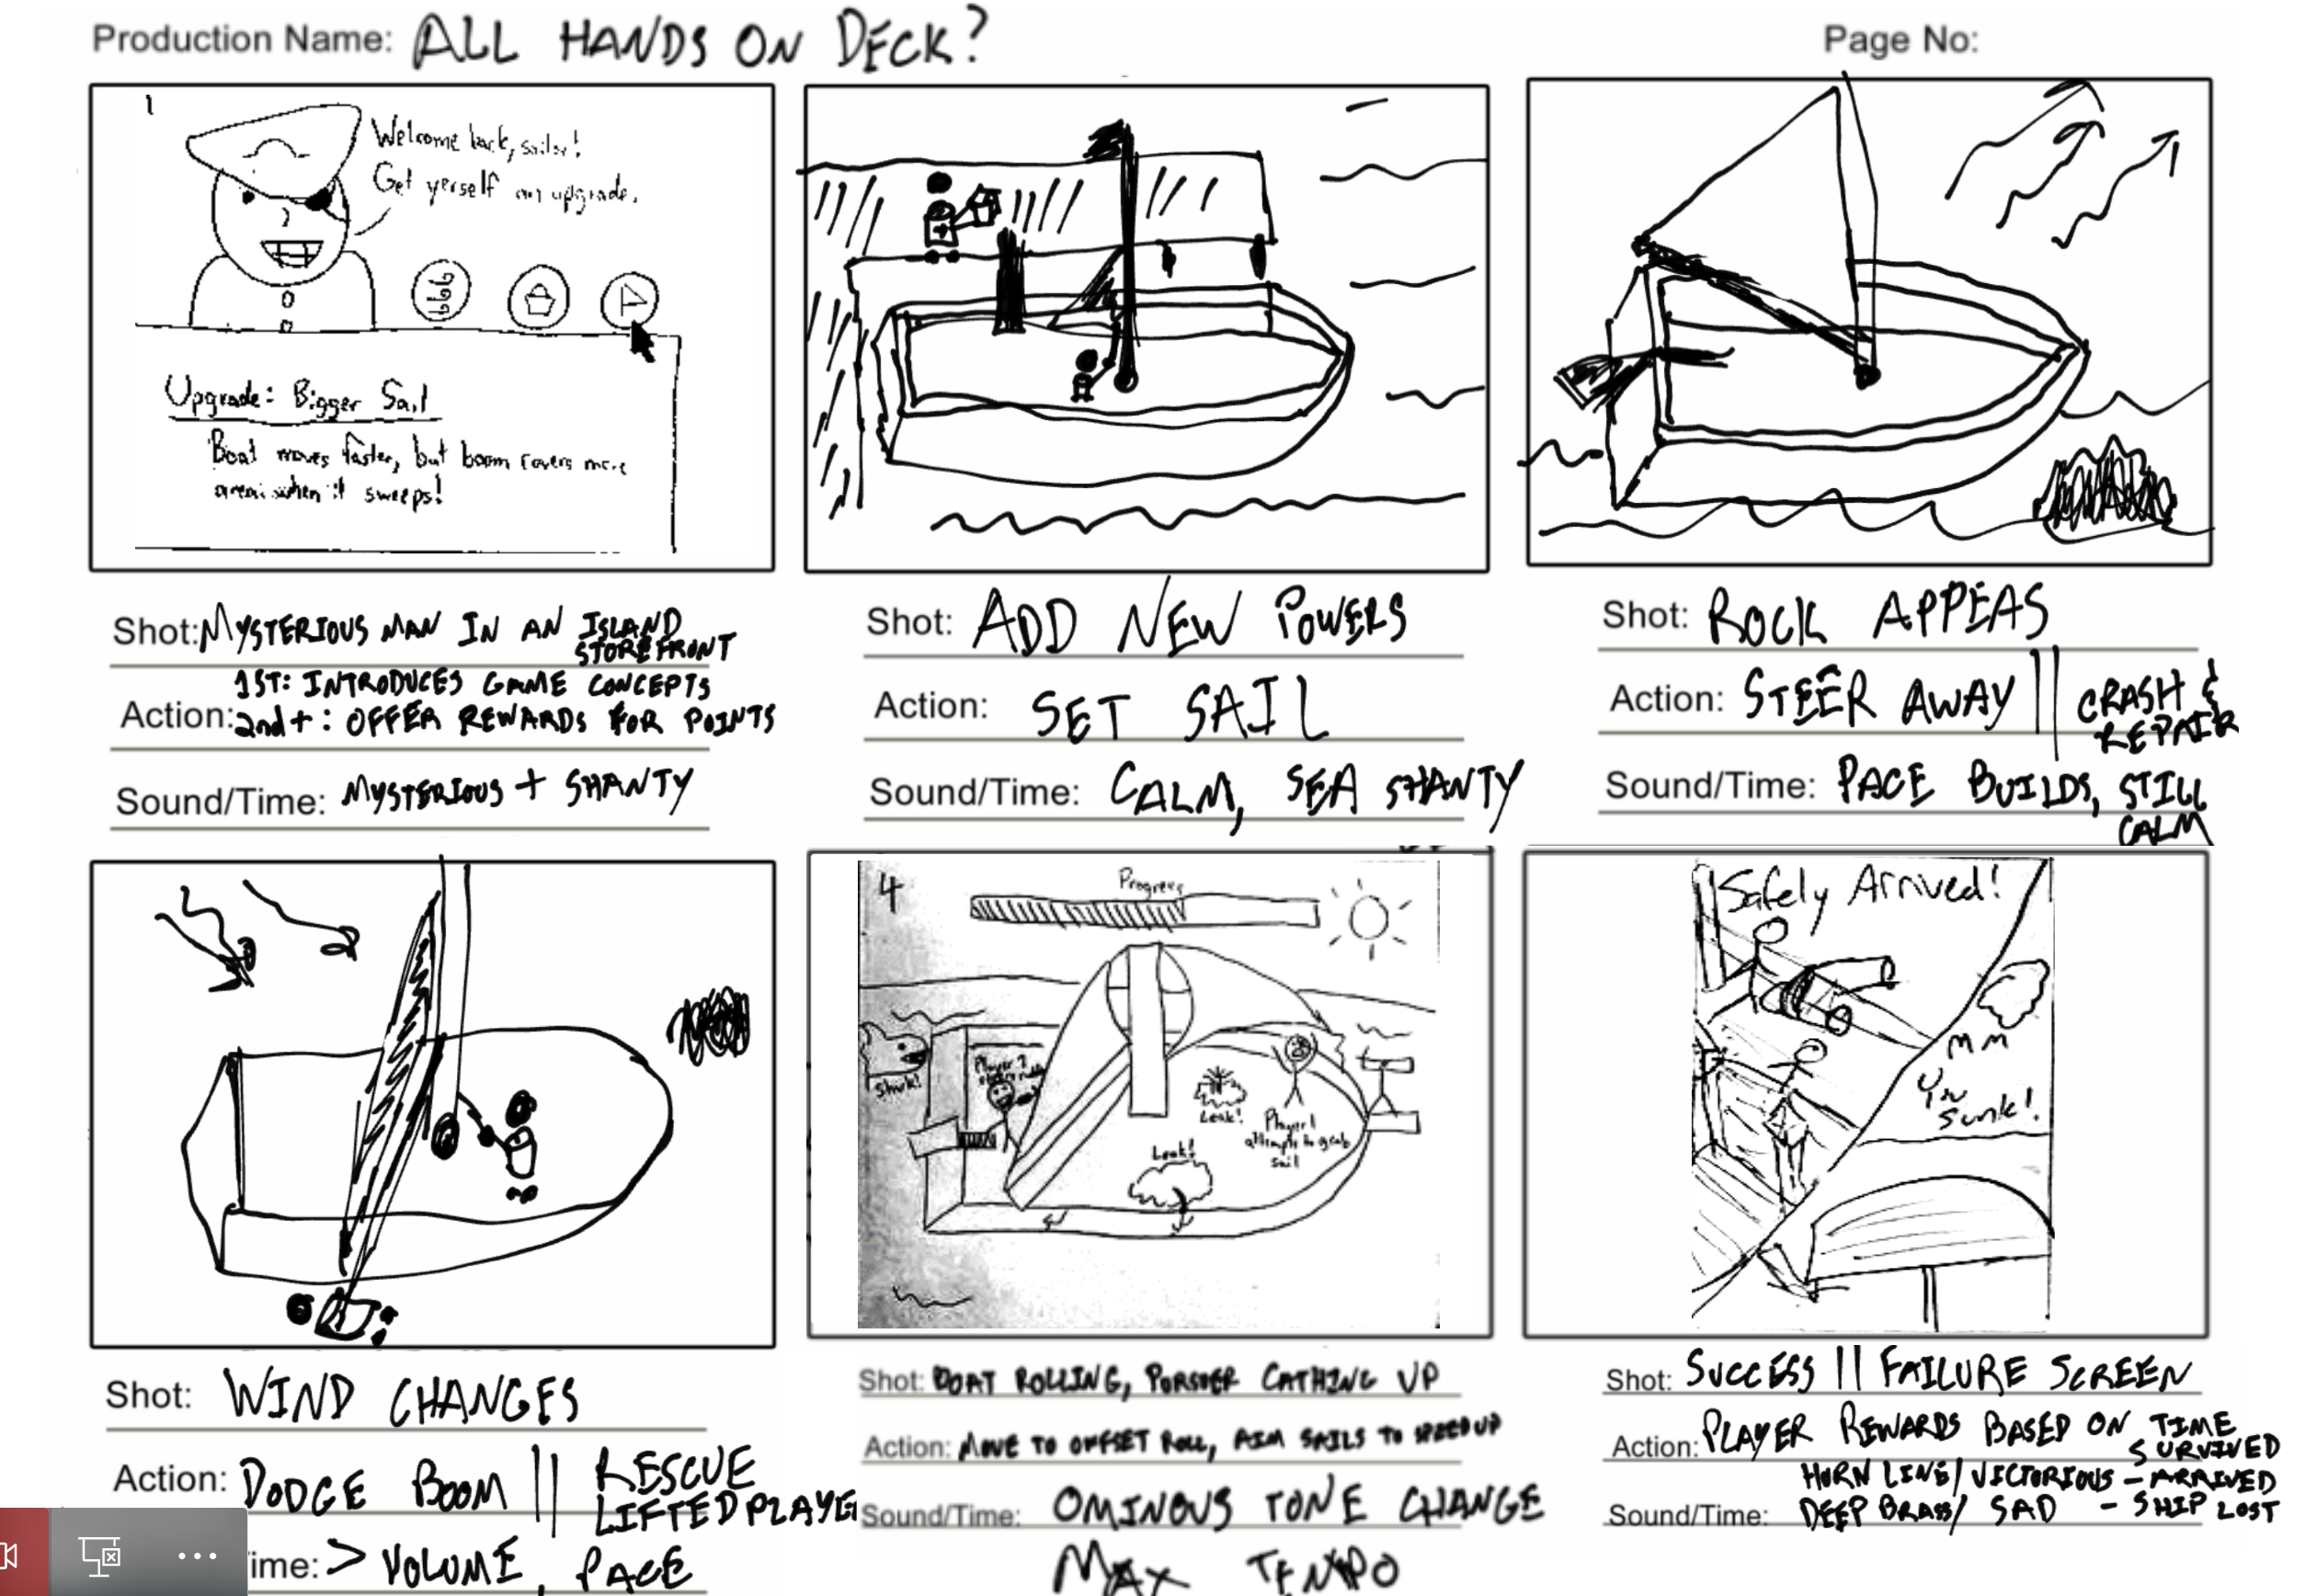 Production Name: ALL HANDS ON DECK?
Page No:
1
Welcome back, sailor!
Get yerself an upgrade.
Upgrade: Bigger Sail
Boat moves faster, but boom covers more
area when it sweeps!
Shot: MYSTERIOUS MAN IN AN ISLAND
STOREFRONT
1ST: INTRODUCES GAME CONCEPTS
Action: 2nd+: OFFER REWARDS FOR POINTS
Sound/Time: MYSTERIOUS + SHANTY
Shot: ADD NEW POWERS
Action: SET SAIL
Sound/Time: CALM, SEA SHANTY
Shot: ROCK APPEAS
Action: STEER AWAY || CRASH &
REPAIR
Sound/Time: PACE BUILDS, STILL
CALM
Shot: WIND CHANGES
Action: DODGE BOOM || RESCUE
LIFTED PLAYER
ime: > VOLUME, PACE
4
Progress
Shark!
Player 2
Leak!
Player 1
attempts to grab
sail
Leak!
Shot: BOAT ROLLING, PURSUER CATHING UP
Action: MOVE TO OFFSET ROLL, AIM SAILS TO SPEED UP
Sound/Time: OMINOUS TONE CHANGE
MAX TEMPO
Safely Arrived!
Yu
Sunk!
Shot: SUCCESS || FAILURE SCREEN
Action: PLAYER REWARDS BASED ON TIME
SURVIVED
HORN LINE/VICTORIOUS - ARRIVED
Sound/Time: DEEP BRASS/ SAD - SHIP LOST